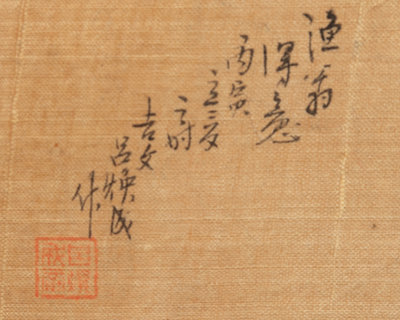 渔翁
得意
丙寅
立夏
之时
吉文
吕焕成
作